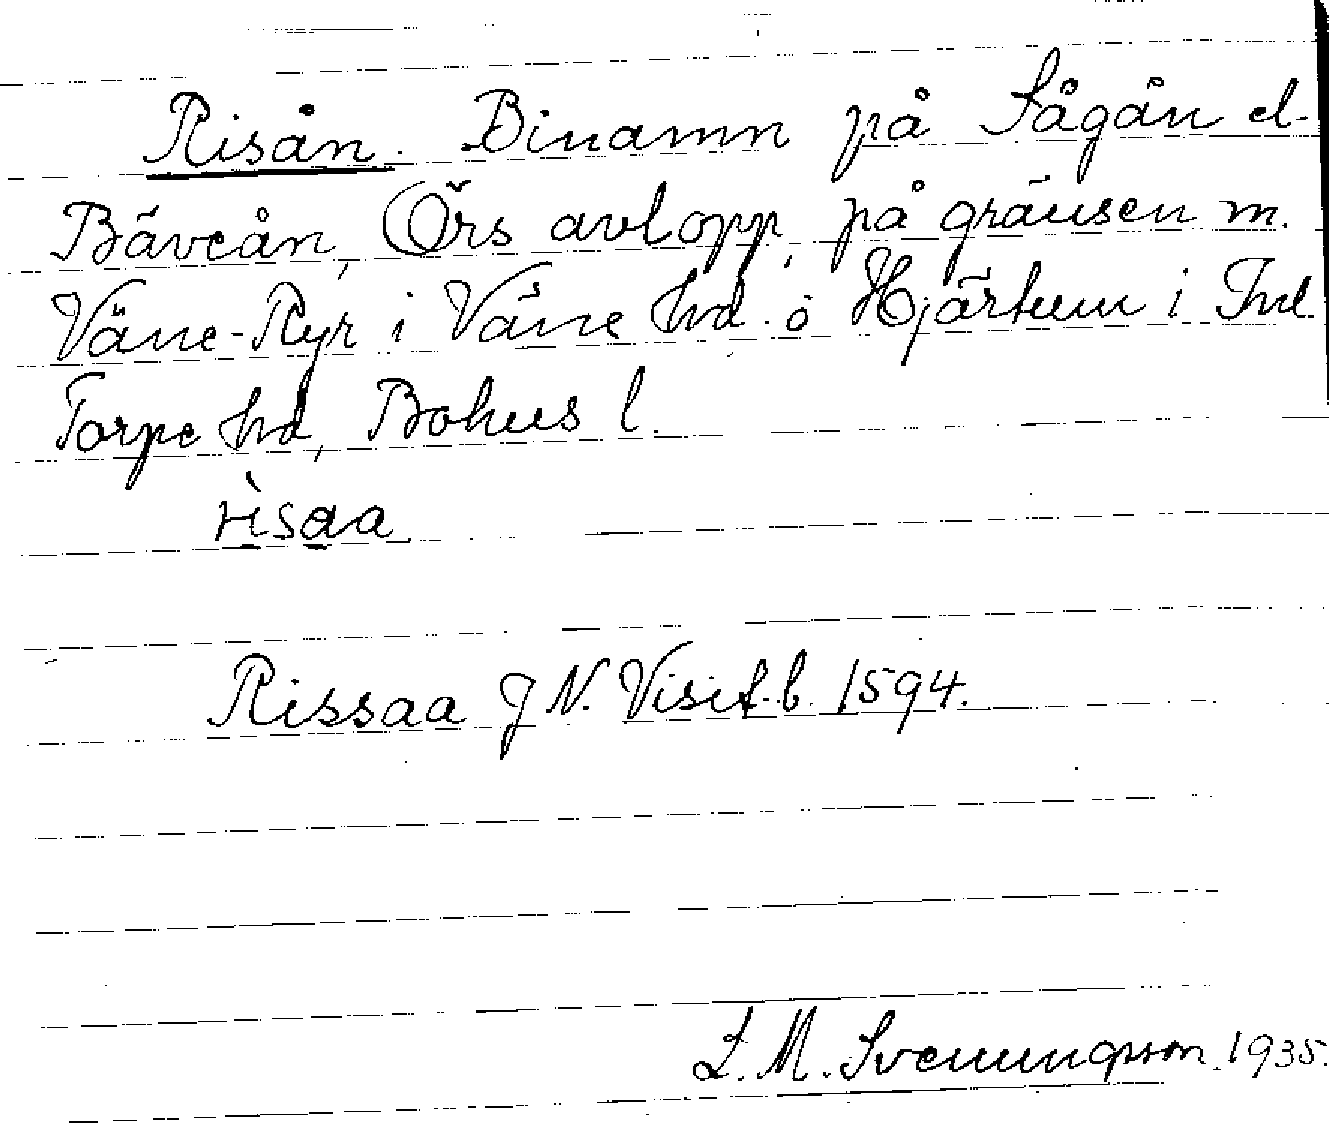 Risån. Binamn på Sågån el.
Bäveån, Örs avlopp, på gränsen m.
Väne-Ryr i Väne hd. o Hjärtum i Inl.
Torpe hd, Bohus l.
rìsaa
Rissaa J N. Visit.b. 1594.
L. M. Svenungsson 1935.